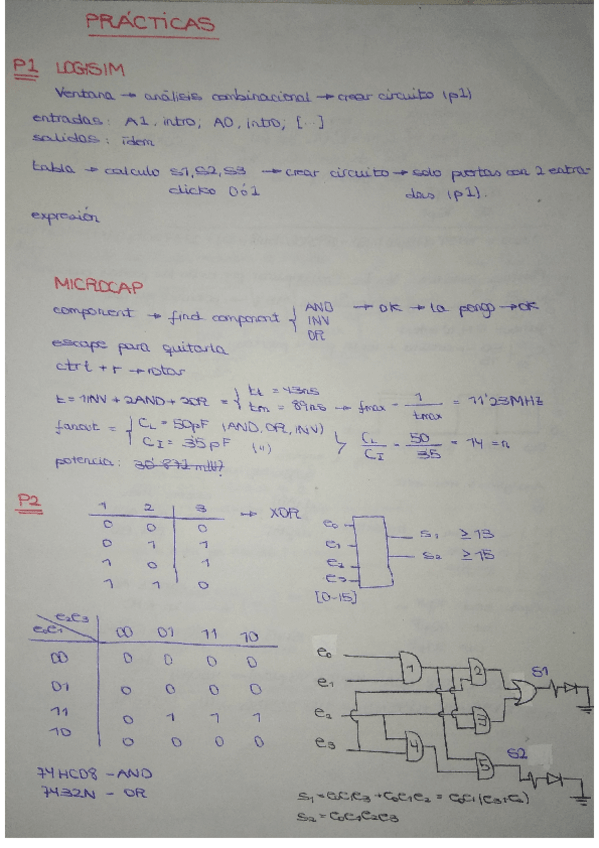 PRÁCTICAS
P1 LOGISIM
Ventana → análisis combinacional → crear circuito (p1)
entradas: A1, intro; A0, intro; [...]
salidas: idem
tabla → calculo S1, S2, S3 → crear circuito → solo puertas con 2 entra-
clicko 0 ó 1 das (p1).
expresión
MICROCAP
component → find component { AND → OK → la pongo → OK
INV
OR
escape para quitarla
ctrl + r → rotar
t = 1INV + 2AND + 2OR = { tt = 43ns
tm = 89ns → fmax = 1/tmax = 11'23MHz
fanout = { CL = 50pF (AND, OR, INV)
CI = 35pF (") } CL/CI = 50/35 = 14 = n
potencia: 30'872 mW
P2
1 2 3 → XOR
0 0 0
0 1 1
1 0 1
1 1 0
e0
e1 S1 ≥13
e2 S2 ≥15
e3
[0-15]
e2e3
e0e1 00 01 11 10
00 0 0 0 0
01 0 0 0 0
11 0 1 1 1
10 0 0 0 0
e0 1 2 S1
e1
e2 3
e3 4 S2
5
74HC08 - AND
7432N - OR
S1 = e0e1e3 + e0e1e2 = e0e1(e3+e2)
S2 = e0e1e2e3